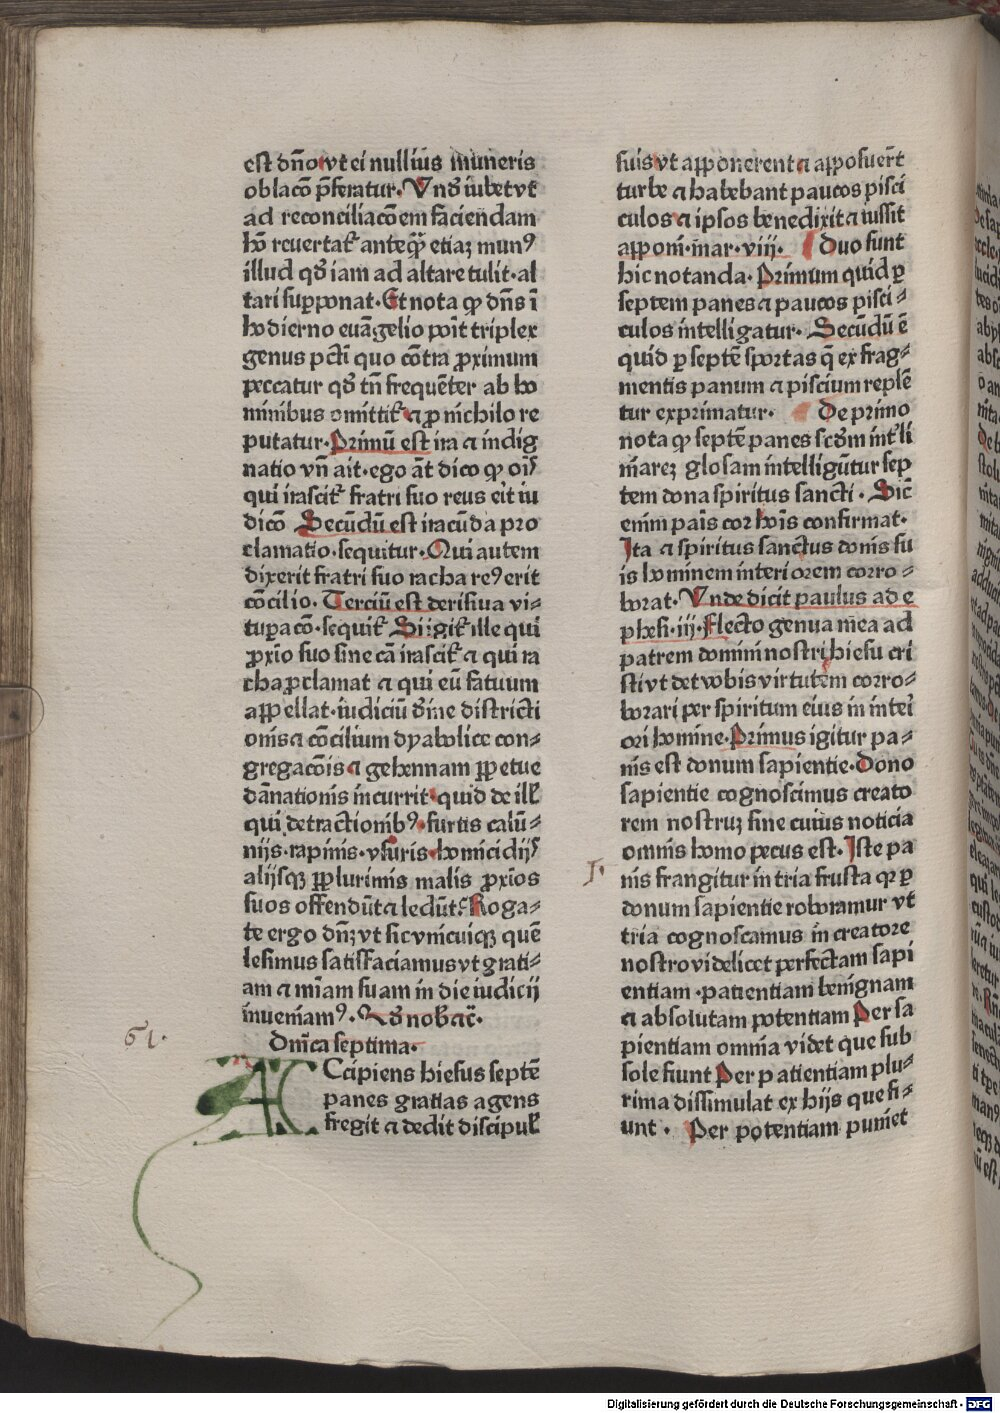 est dn̄o vt ei nullius muneris
oblacō p̄feratur. Vnd̓ iubet vt
ad reconciliacōem faciendam
hō reuertat᷑ anteq̄ȝ etiaz munꝰ
illud qd̓ iam ad altare tulit. al
tari supponat. Et nota ꝙ dn̄s ī
hodierno euāgelio poīt triplex
genus pctī quo cōtra ꝓximum
peccatur qd̓ tn̄ frequēter ab ho
minibus omittit᷑ ⁊ ꝓ nichilo re
putatur. Primū est ira ⁊ indig
natio vn̄ ait. ego āt dico ꝙ oīs
qui irascit᷑ fratri suo reus eīt iu
dicō Secūdū est iracūda pro
clamatio. sequitur. Qui autem
dixerit fratri suo racha reꝰ erit
cōcilio. Terciū est derisiua vi⸗
tuꝑacō. sequit᷑ Si igit᷑ ille qui
ꝓxīo suo sine cā irascit᷑ ⁊ qui ra
cha ꝓclamat ⁊ qui eū fatuum
appellat. iudiciū d̓ine districti
onis ⁊ cōcilium dyabolice con⸗
gregacōis ⁊ gehennam ꝑpetue
dānationis incurrit. quid de ill̓
qui detractionibꝰ. furtis calū⸗
niis. rapinis. vsuris homicidijs
alijsqȝ ꝑplurimis malis ꝓxios
suos offendūt ⁊ ledūt. Roga⸗
te ergo dn̄ȝ vt sic vnicuiqȝ quē
lesimus satisfaciamus vt grati⸗
am ⁊ mīam suam in die iudicij
inueniamꝰ. Qd̓ nob̓ ⁊c̄.
Dnīca septima.
ACcipiens hiesus septē
panes gratias agens
fregit ⁊ dedit discipul̓
61.
suis vt apponerent ⁊ apposuer̄t
turbe ⁊ habebant paucos pisci
culos ⁊ ipsos benedixit ⁊ iussit
apponi. mar. viij. Duo sunt
hic notanda. Primum quid ꝑ
septem panes ⁊ paucos pisci⸗
culos intelligatur. Secūdū ē
quid ꝑ septē sportas q̄ ex frag⸗
mentis panum ⁊ piscium replē
tur exprimatur. De primo
nota ꝙ septē panes scd̓m int̓li
niarez glosam intelligūtur sep
tem dona spiritus sancti. Sic̄
enim pais cor hoīs confirmat.
Ita ⁊ spiritus sanctus donis su
is hominem interiorem corro⸗
borat. Vnde dicit paulus ad e
phesi. iij. Flecto genua mea ad
patrem domini nostri hiesu cri
sti vt det vobis virtutem corro⸗
borari per spiritum eius in interi
ori homine. Primus igitur pa⸗
nis est donum sapientie. Dono
sapientie cognoscimus creato
rem nostruȝ sine cuius noticia
omnis homo pecus est. Iste pa
I.
nis frangitur in tria frusta qꝛ ꝑ
donum sapientie roboramur vt
tria cognoscamus in creatore
nostro videlicet perfectam sapi
entiam. patientiam benignam
⁊ absolutam potentiam Per sa
pientiam omnia videt que sub
sole fiunt Per patientiam plu⸗
rima dissimulat ex hijs que fi⸗
unt. Per potentiam puniet
Digitalisierung gefördert durch die Deutsche Forschungsgemeinschaft - DFG